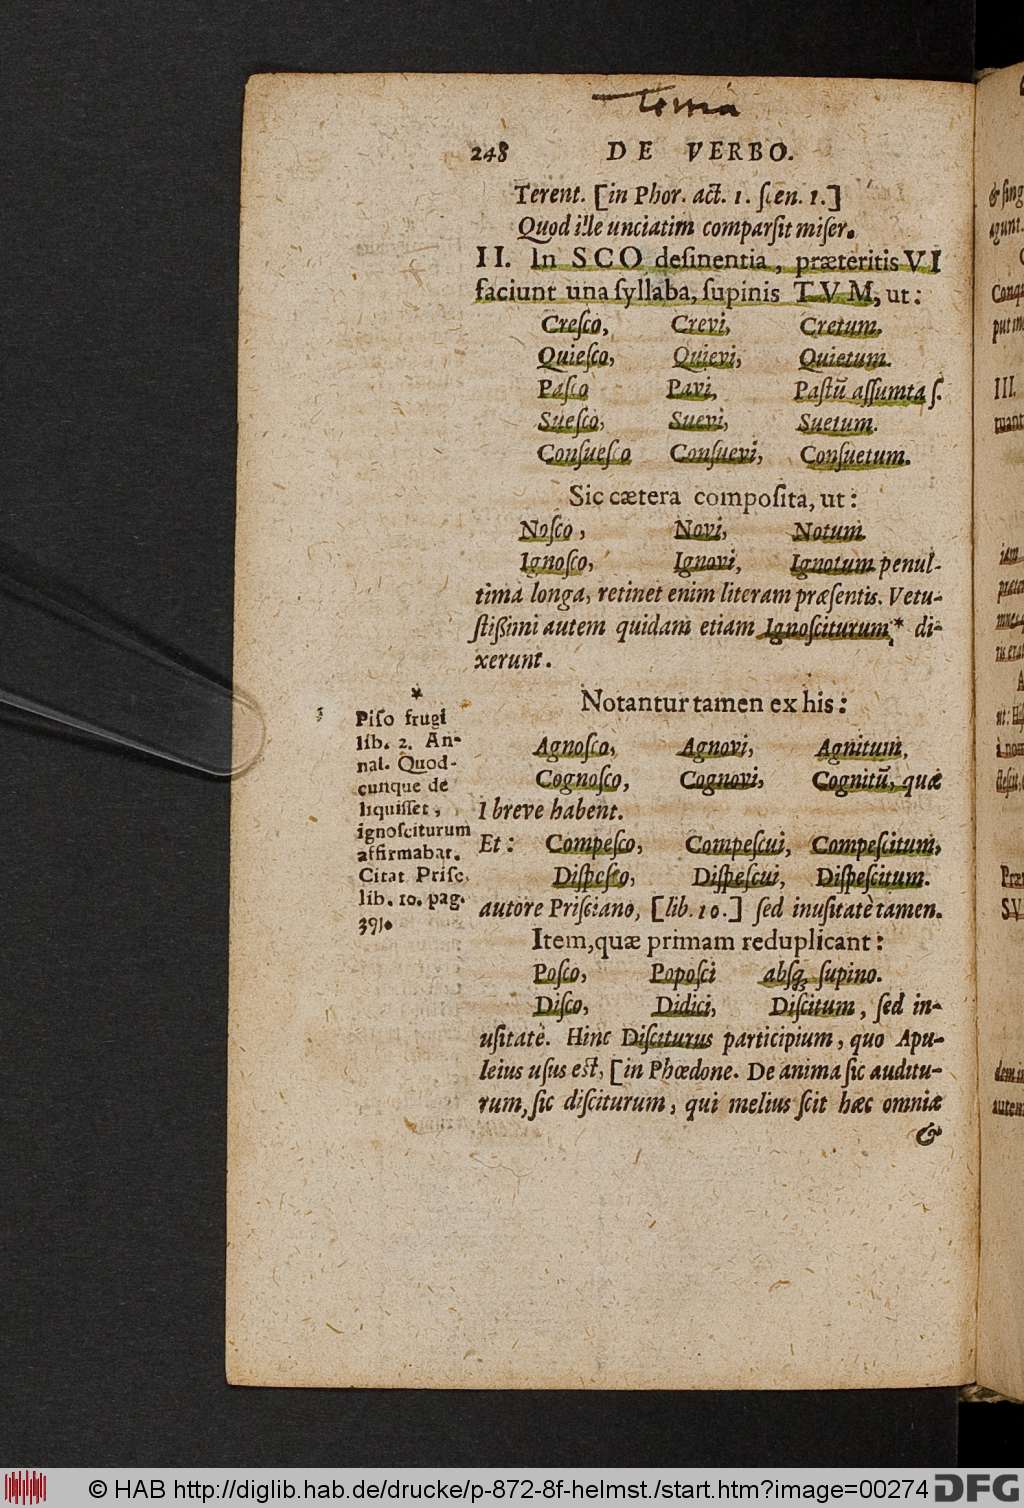 248 DE VERBO.
Terent. [in Phor. act. 1. scen. 1.]
Quod ille unciatim comparsit miser.
II. In SCO desinentia, præteritis VI
faciunt una syllaba, supinis TVM, ut:
Cresco, Crevi, Cretum.
Quiesco, Quievi, Quietum.
Pasco Pavi, Pastū assumta s.
Suesco, Suevi, Suetum.
Consuesco Consuevi, Consuetum.
Sic cætera composita, ut:
Nosco, Novi, Notum.
Ignosco, Ignovi, Ignotum penul-
tima longa, retinet enim literam præsentis. Vetu-
stißimi autem quidam etiam Ignosciturum,* di-
xerunt.
Notantur tamen ex his:
Agnosco, Agnovi, Agnitum,
Cognosco, Cognovi, Cognitū, quæ
I breve habent.
Et: Compesco, Compescui, Compescitum,
Dispesco, Dispescui, Dispescitum.
autore Prisciano, [lib. 10.] sed inusitatè tamen.
Item, quæ primam reduplicant:
Posco, Poposci absq; supino.
Disco, Didici, Discitum, sed in-
usitatè. Hinc Disciturus participium, quo Apu-
leius usus est, [in Phœdone. De anima sic auditu-
rum, sic disciturum, qui melius scit hæc omnia
&
*
Piso frugi
lib. 2. An-
nal. Quod-
cunque de
liquisset,
ignosciturum
affirmabat.
Citat Prisc.
lib. 10. pag.
391.
& sing
agunt.
Conqu
III.
tuant
© HAB http://diglib.hab.de/drucke/p-872-8f-helmst./start.htm?image=00274
DFG